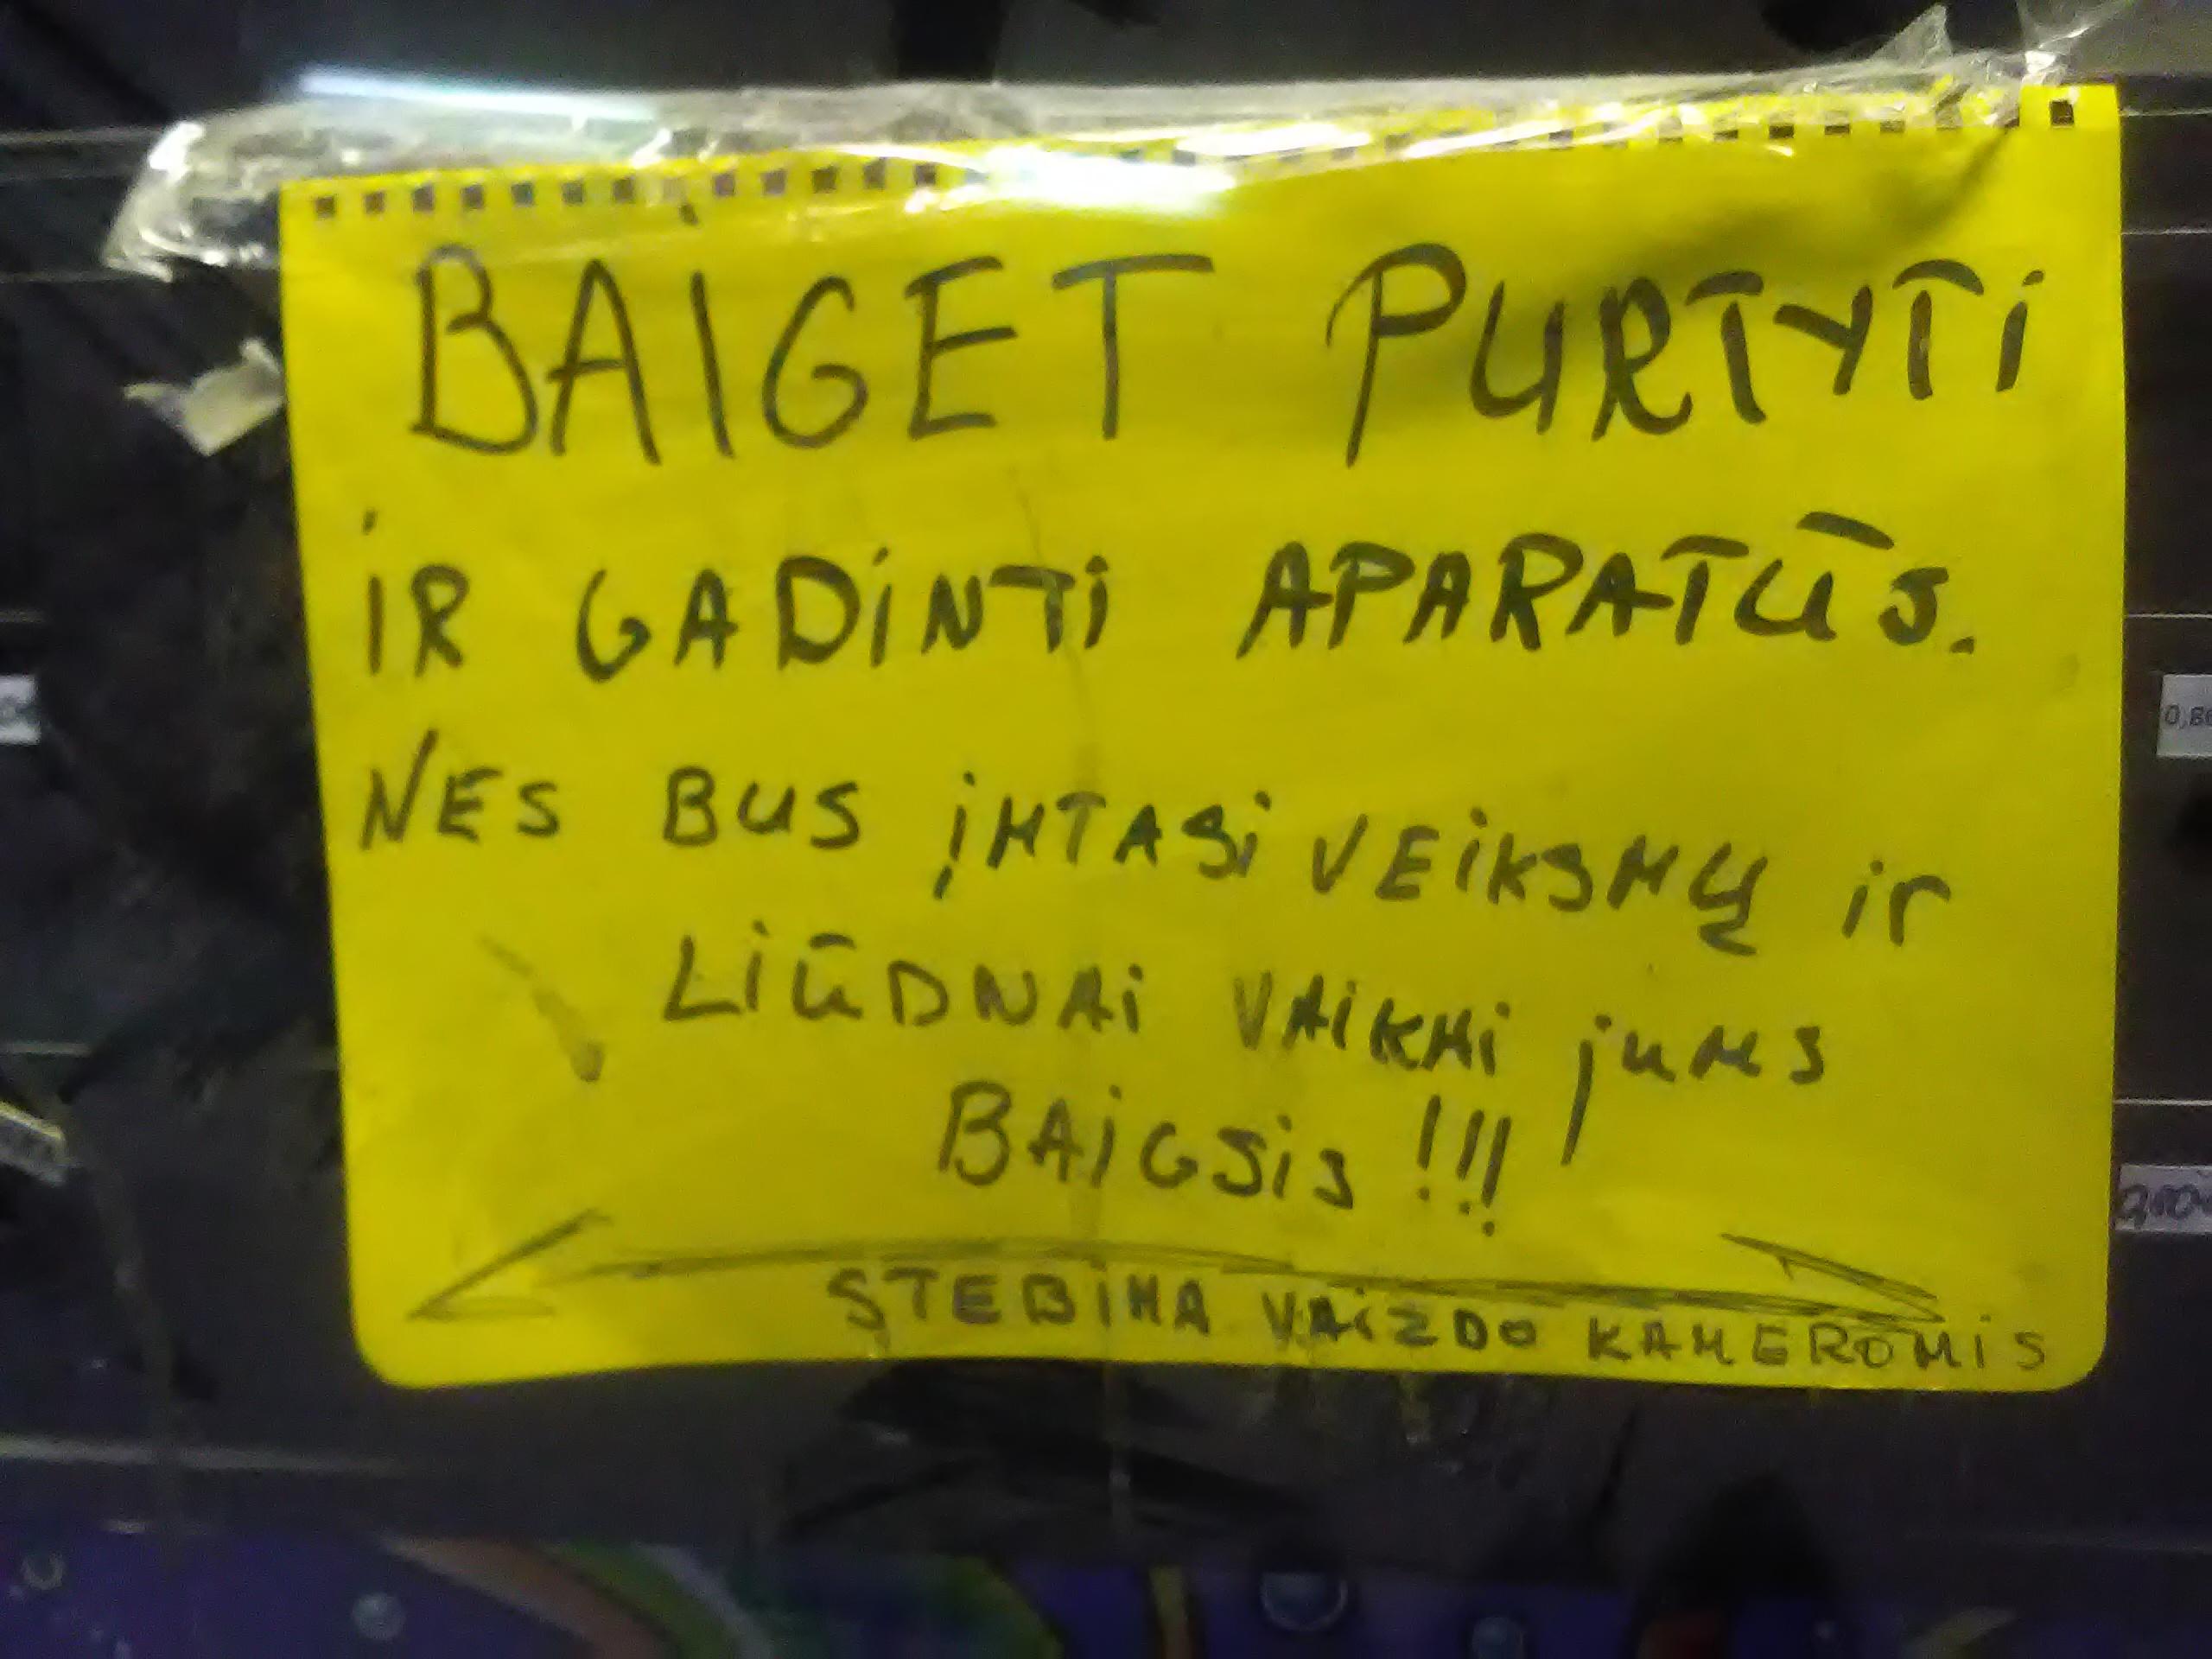 BAIGET PURTYTI
IR GADINTI APARATŪS.
NES BUS ĮMTASI VEIKSMŲ ir
LIŪDNAI VAIKMI jUMS
BAIGSIS !!!
STEBIMA VAIZDO KAMEROMIS
0,80